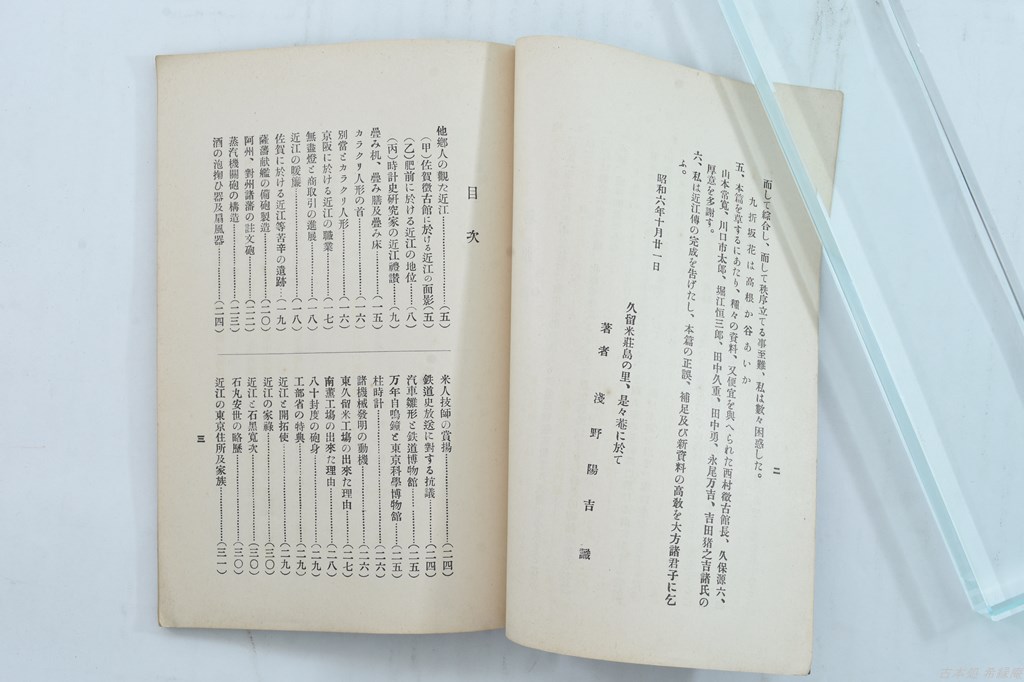 而して綜合し、而して秩序立てる事至難、私は數々困惑した。
九折坂花は高根か谷あいか
五、本篇を草するにあたり、種々の資料、又便宜を與へられた西村徵古館長、久保源六、
山本常寬、川口市太郎、堀江恒三郎、田中久重、田中勇、永尾万吉、吉田猪之吉諸氏の
厚意を多謝す。
六、私は近江傳の完成を告げたし、本篇の正誤、補足及び新資料の高敎を大方諸君子に乞
ふ。
昭和六年十月廿一日
久留米莊島の里、是々菴に於て
著者 淺野陽吉 識
二
目次
他鄕人の觀た近江…………(五)
(甲)佐賀徵古館に於ける近江の面影(五)
(乙)肥前に於ける近江の地位……(八)
(丙)時計史硏究家の近江禮讚……(九)
疊み机、疊み膳及疊み床…………(一五)
カラクリ人形の首…………(一六)
別當とカラクリ人形…………(一六)
京阪に於ける近江の職業…………(一七)
無盡燈と商取引の進展…………(一八)
近江の暖簾…………(一八)
佐賀に於ける近江等苦辛の遺跡…(一九)
薩藩献艦の備砲製造…………(二〇)
阿州、對州諸藩の註文砲…………(二二)
蒸汽機關砲の構造…………(二三)
酒の泡掬ひ器及扇風器…………(二四)
米人技師の賞揚…………(二四)
鉄道史放送に對する抗議…………(二四)
汽車雛形と鉄道博物館…………(二五)
万年自鳴鐘と東京科學博物館……(二五)
柱時計…………(二六)
諸機械發明の動機…………(二六)
東久留米工塲の出來た理由………(二七)
南薰工塲の出來た理由…………(二八)
八十封度の砲身…………(二九)
工部省の特典…………(二九)
近江と開拓使…………(二九)
近江の家祿…………(三〇)
近江と石黑寬次…………(三〇)
石丸安世の略歷…………(三〇)
近江の東京住所及家族…………(三一)
三
古本屋 希縁庵